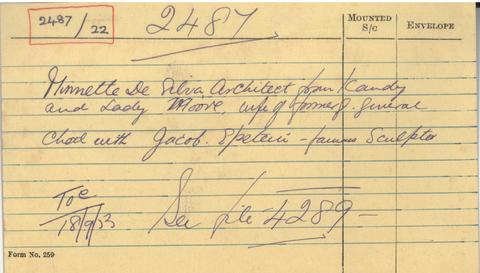 2487/22
2487
MOUNTED S/C
ENVELOPE
Minnette De Silva, Architect from Kandy
and Lady Moore, wife of former G. General
Chat with Jacob. Epstein - famous Sculptor
ToC
18/9/53
See file 4289 -
Form No. 259